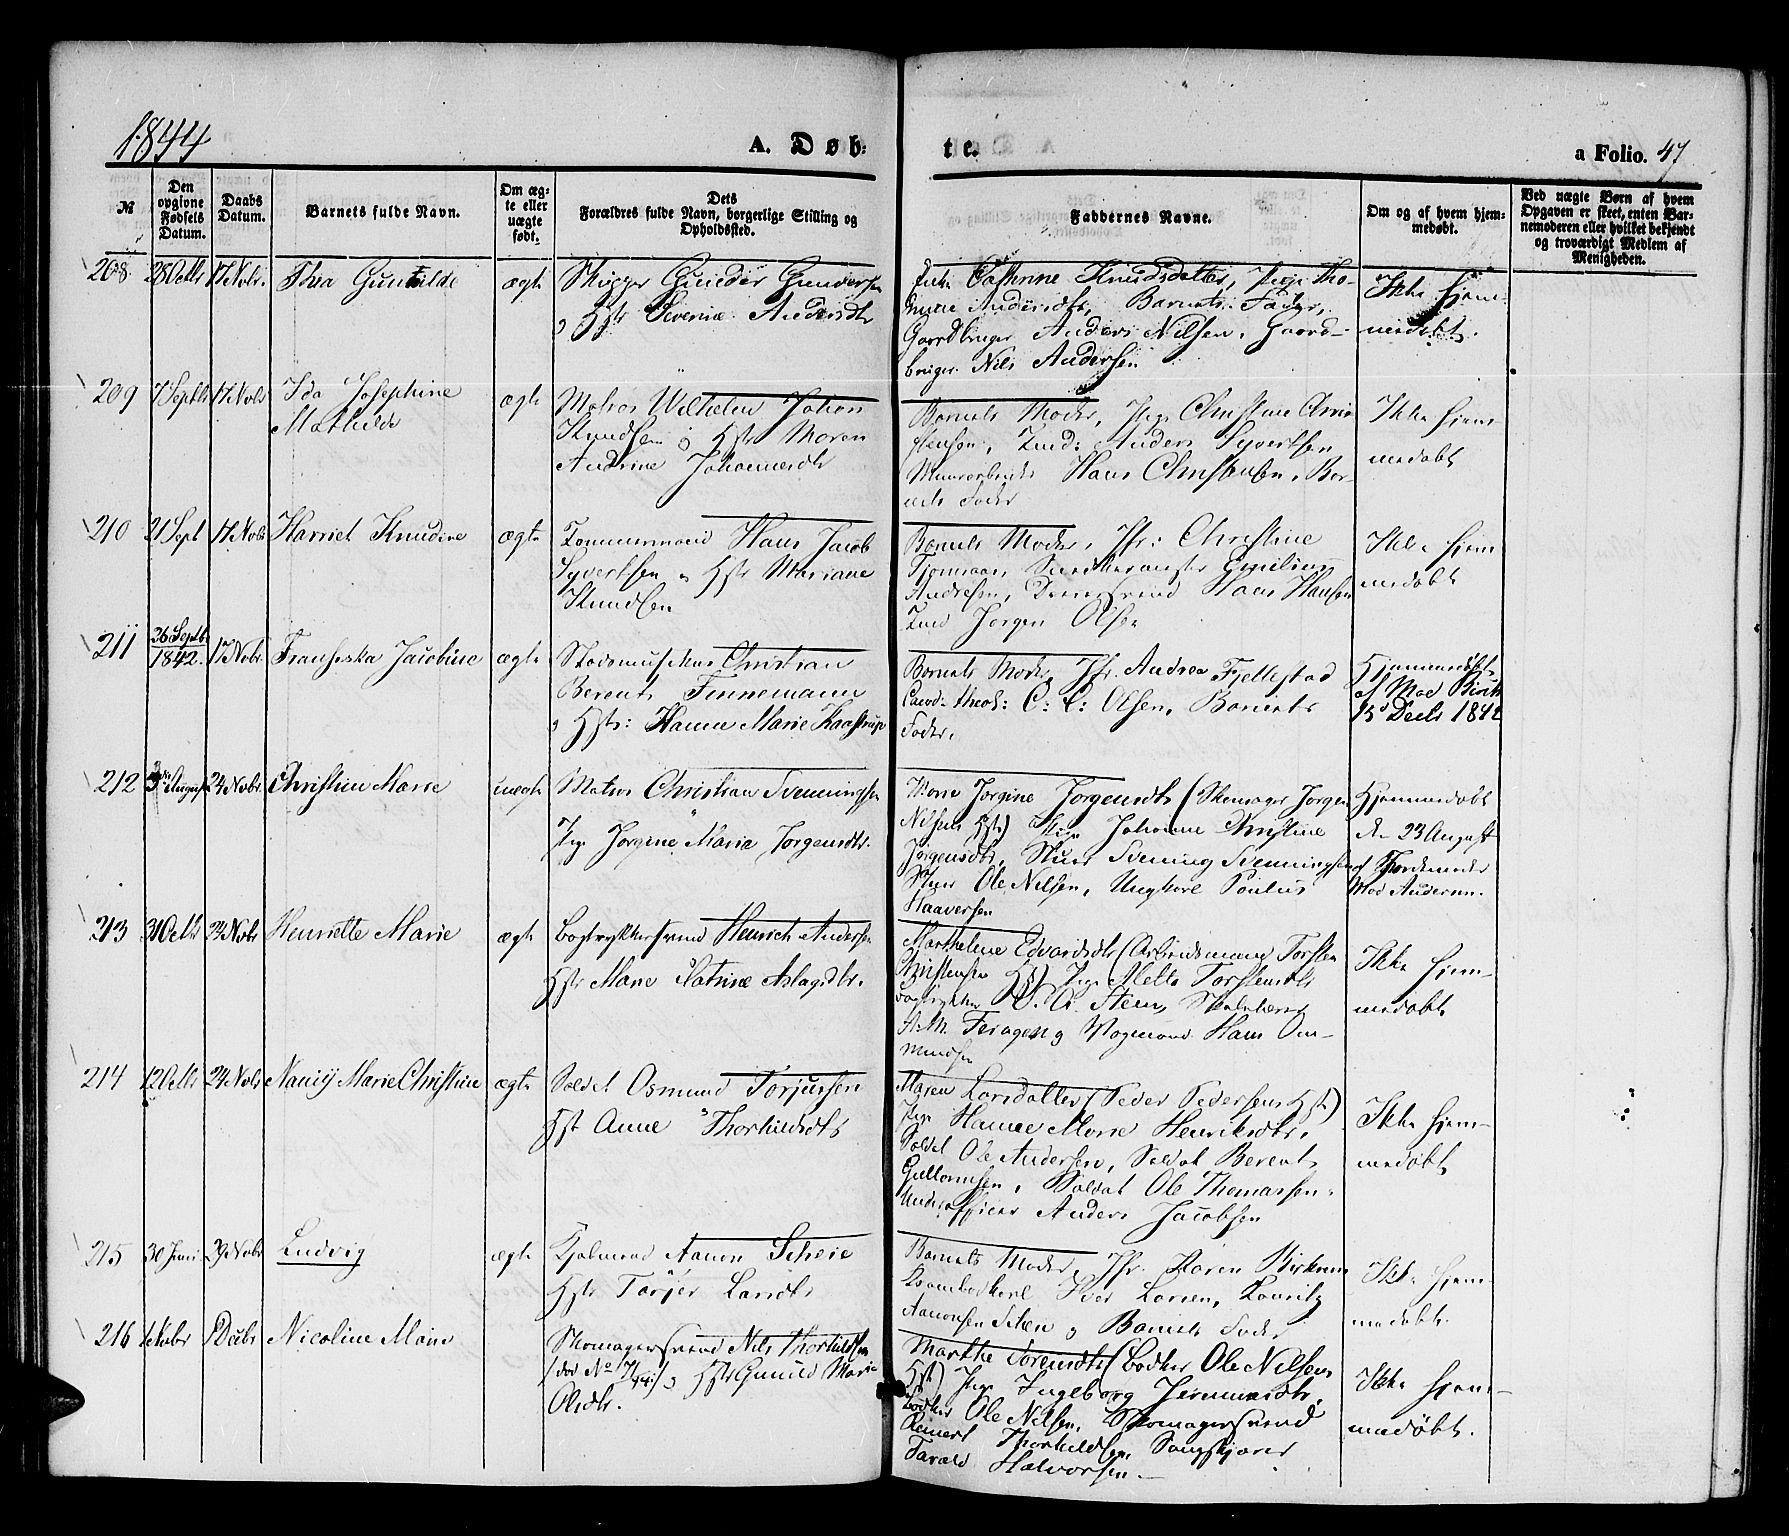 1844
A. Døb-
te.
a Folio. 47
№
Den opgivne Fødsels Datum.
Daabs Datum.
Barnets fulde Navn.
Om ægte eller uægte født.
Dets Forældres fulde Navn, borgerlige Stilling og Opholdssted.
Faddernes Navne.
Om og af hvem hjemmedøbt.
Ved uægte Børn af hvem Opgaven er skeet, enten Barnemoderen eller hvilket bekjendt og troværdigt Medlem af Menigheden.
208 28 Octb 17 Nobr. Thea Gunhilde ægte
Gunder Gundersen
Hstr Severine Andersdtr
Enke Cathrine Knudsdatter, Pige Tho-
mine Andersdtr, Barnets Fader,
Gaardbruger Anders Nilsen, Gaard-
bruger Nils Andersen
Ikke hjem-
medøbt.
209 7 Septb 17 Nobr Ida Josephine
Mathilde
ægte
Matros Wilhelm Johan
Knudsen og Hstr Maren
Andrine Johannesdtr
Barnets Moder, Pige Christine Chri-
stensen, Anders Syvertsen
Hans Christensen, Bar-
nets Fader
Ikke hjem-
medøbt
210 21 Sept 17 Nobr Harriet Knudine ægte
Tømmermand Hans Jacob
Syvertsen og Hstr Mariane
Knudsen
Barnets Moder, Jfr: Christine
Emilius
Andresen, Hans Hansen
Jørgen Olsen
Ikke hjem
medøbt
211 26 Septb 1842. 17 Nobr Fransiska Jacobine ægte
Christian
Berent Tinnemann
og Hstr: Hanna Marie Kaastrup
Barnets Moder, Jfr. Andrea Fjellestad
Cand: theol: C: C: Olsen, Barnets
Fader.
Hjemmedøbt
af Mad Birch
15 Decb 1842
212 3 August 24 Nobr Christine Marie uægte
Matros Christian Svenningsen
Pige Jørgine Marie Jørgensdtr.
Kone Jørgine Jørgensdtr (Skomager Jørgen
Nilsens Hstr) Pige Johanne Christine
Jørgensdtr, Svenning Svenningsen
Ole Nilsen, Ungkarl Poulus
Haaversen
Hjemmedøbt
d. 23 August
af Jordemoder
Mad Andersen.
213 31 Octb 24 Nobr Henriette Marie ægte
Bogtrykkersvend Henrich Andersen
Hstr Marie Katrine Aslagsdtr.
Marthelene Edvardsdtr (Arbeidsmand Torsten
Christensen Hst) Pige Mette Torstensdtr
Bogtrykker O. C. Steen,
A. M. Feragen og Vognmand Hans Om-
mundsen
Ikke hjem-
medøbt
214 12 Octb 24 Nobr Nancy Marie Christine ægte
Soldat Osmund Torjussen
Hst Anne Thorkildsdtr
Maren Larsdatter (Peder Pedersens Hst)
Pige Hanne Marie Henriksdtr,
Soldat Ole Andersen, Soldat Berent
Gullovnsen, Soldat Ole Thomassen,
Underofficer Anders Jacobsen
Ikke hjem-
medøbt
215 30 Juni 29 Nobr Ludvig ægte
Aanon Scheie
Hstr Torjer Larsdtr
Barnets Moder, Jfr. Karen Birkrem
Iver Larsen, Lauritz
Aanonsen Scheie og Barnets Fader
Ikke hjem
medøbt.
216 1 Nobr 1 Decbr Nicoline Marie
Skomagersvend Nils Thorkildsen
(død No 7/44) og Hstr Gunild Marie
Olsdtr.
Marthe Sørensdtr (Bødker Ole Nilsens
Hst) Pige Ingeborg Jermundsdtr,
Bødker Ole Nilsen, Skomagersvend
Reinert Thorkildsen, Saugskjærer
Tarald Halvorsen. —
Ikke hjem-
medøbt.